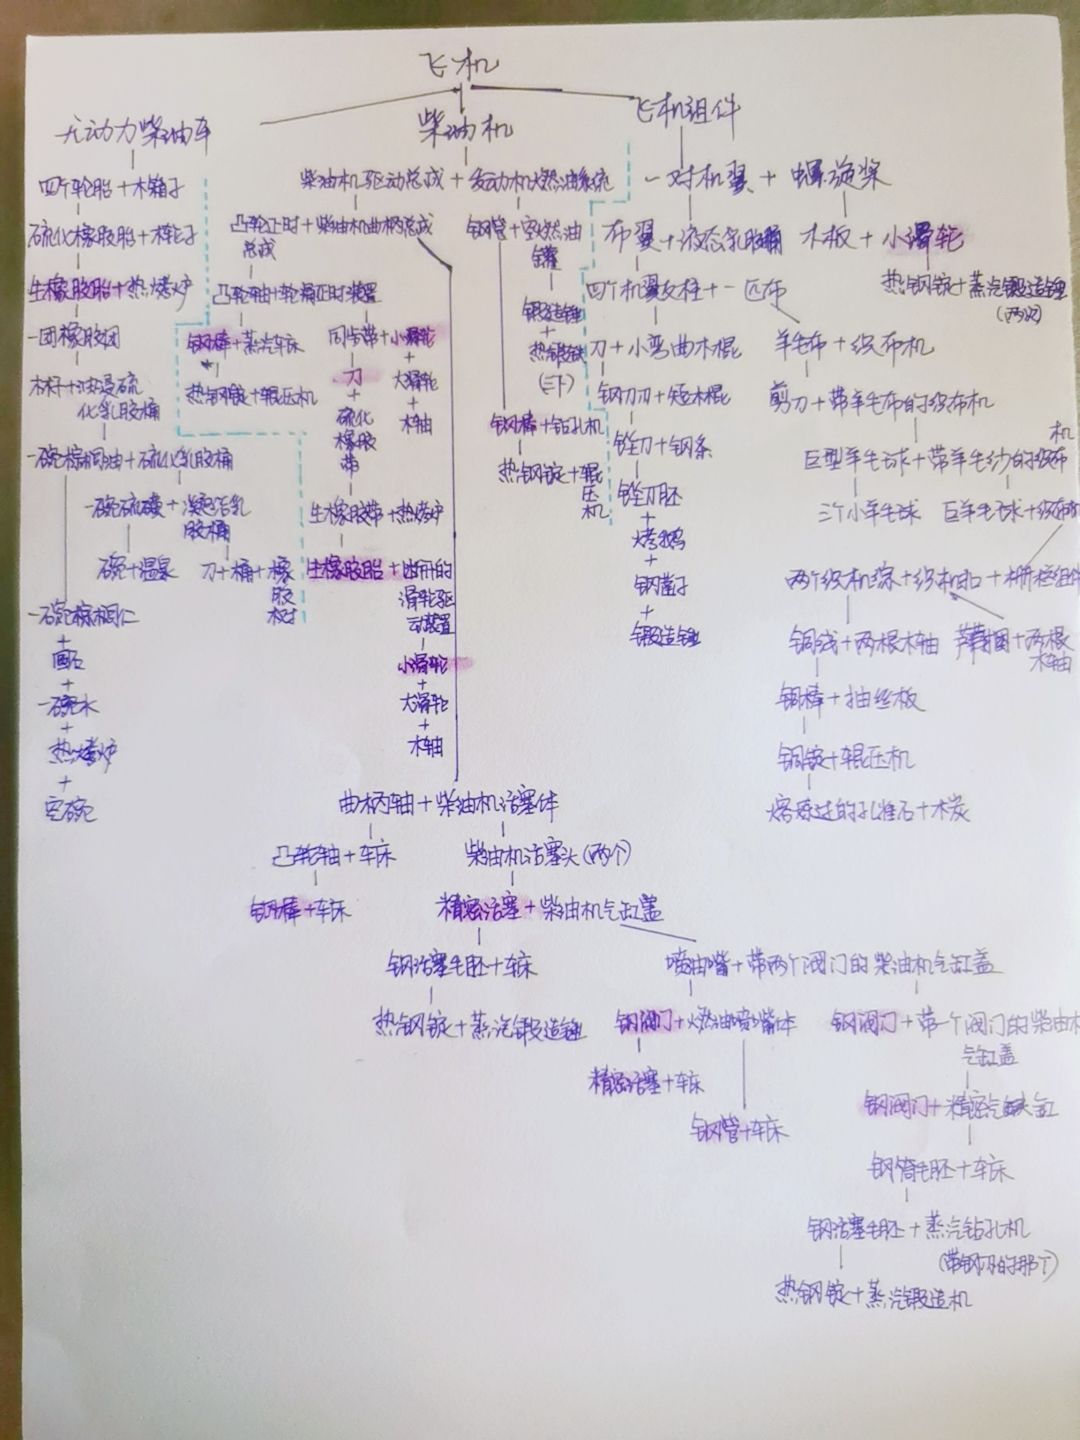 飞机
无动力柴油车
柴油机
飞机组件
四个轮胎+木箱子
硫化橡胶胎+木轮子
生橡胶胎+热烤炉
一团橡胶团
木杆+油浸硫
化乳胶桶
一碗棕榈油+硫化乳胶桶
一碗硫磺+凝起舌乳
胶桶
碗+温泉
刀+桶+橡
胶
树
一碗棕榈仁
+
圆石
+
一碗水
+
热烤炉
+
空碗
柴油机驱动总成+发动机燃油系统
凸轮正时+柴油机曲柄总成
总成
凸轮轴+轮桶正时装置
钢棒+蒸汽车床
热钢锭+辊压机
同步带+小滑轮
刀
+
硫化
橡胶
带
+
大滑轮
+
木轴
生橡胶带+热烤炉
生橡胶胎+断开的
滑轮驱
动装置
小滑轮
+
大滑轮
+
木轴
钢管+空燃油
罐
锻造锤
+
热锻铁
(三下)
钢棒+钻孔机
热钢锭+辊
压
机
一对机翼+螺旋桨
布翼+液态乳胶桶
木板+小滑轮
热钢锭+蒸汽锻造锤
(两次)
四个机翼支柱+一匹布
刀+小弯曲木棍
钢刀刃+短木棍
锉刀+钢条
锉刀胚
+
烤鹅
+
钢凿子
+
锻造锤
羊毛布+织布机
剪刀+带羊毛布的织布机
巨型羊毛球+带羊毛纱的织布
机
三个小羊毛球
巨羊毛球+织布机
两个织机综+织机扣+栅栏组件
铜线+两根木轴
芦苇捆+两根
木轴
铜棒+抽丝板
铜锭+辊压机
熔炼过的孔雀石+木炭
曲柄轴+柴油机活塞体
凸轮轴+车床
钢棒+车床
柴油机活塞头(两个)
精密活塞+柴油机气缸盖
钢活塞毛胚+车床
热钢锭+蒸汽锻造锤
喷油嘴+带两个阀门的柴油机气缸盖
钢阀门+燃油喷嘴体
精密活塞+车床
钢管+车床
钢阀门+带一个阀门的柴油机
气缸盖
钢阀门+精密汽缸
钢筒毛胚+车床
钢活塞毛胚+蒸汽钻孔机
(带钢刀的那个)
热钢锭+蒸汽锻造机